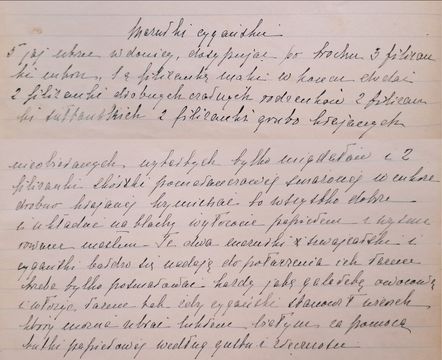 Mazurki cygańskie
5 jaj utrzeć w donicy, dosypując po trochu 3 filiżan
ki cukru, 1 ½ filiżanki mąki w końcu dodać
2 filiżanki drobnych czarnych rodzenków 2 filiżan
ki sułtańskich 2 filiżanki grubo krajanych
nieobieranych, wytartych tylko migdałów i 2
filiżanki skórki pomarańczowej smażonej w cukrze
drobno krajanej wymieszać to wszystko dobrze
i układać na blachy wyłożone papierem i wysma
rowane masłem. Te dwa mazurki szwajcarski i
cygański bardzo się nadają do połączenia ich razem
trzeba tylko posmarować każdy jaką galaretą owocową
i włożyć razem tak żeby cygański stanowił wierzch
który można ubrać lukrem białym za pomocą
tutki papierowej według gustu i